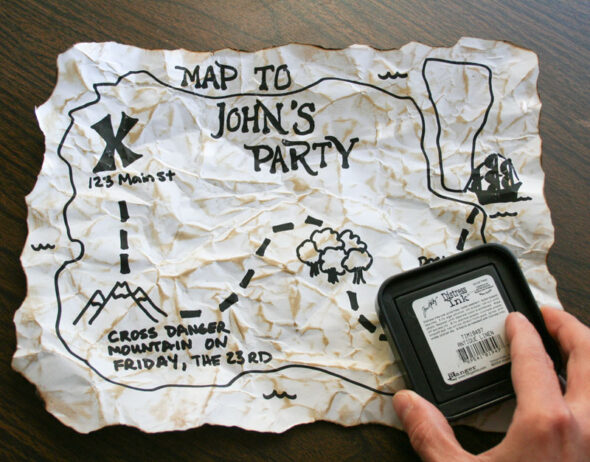 MAP TO
JOHN'S
PARTY
X
123 Main St
CROSS DANGER
MOUNTAIN ON
FRIDAY, THE 23RD
Distress
Ink
Ranger